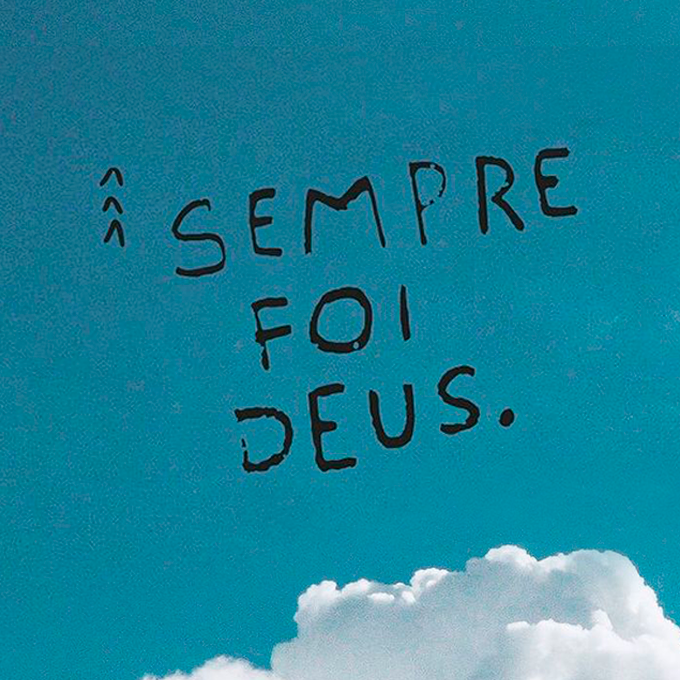 SEMPRE
FOI
DEUS.